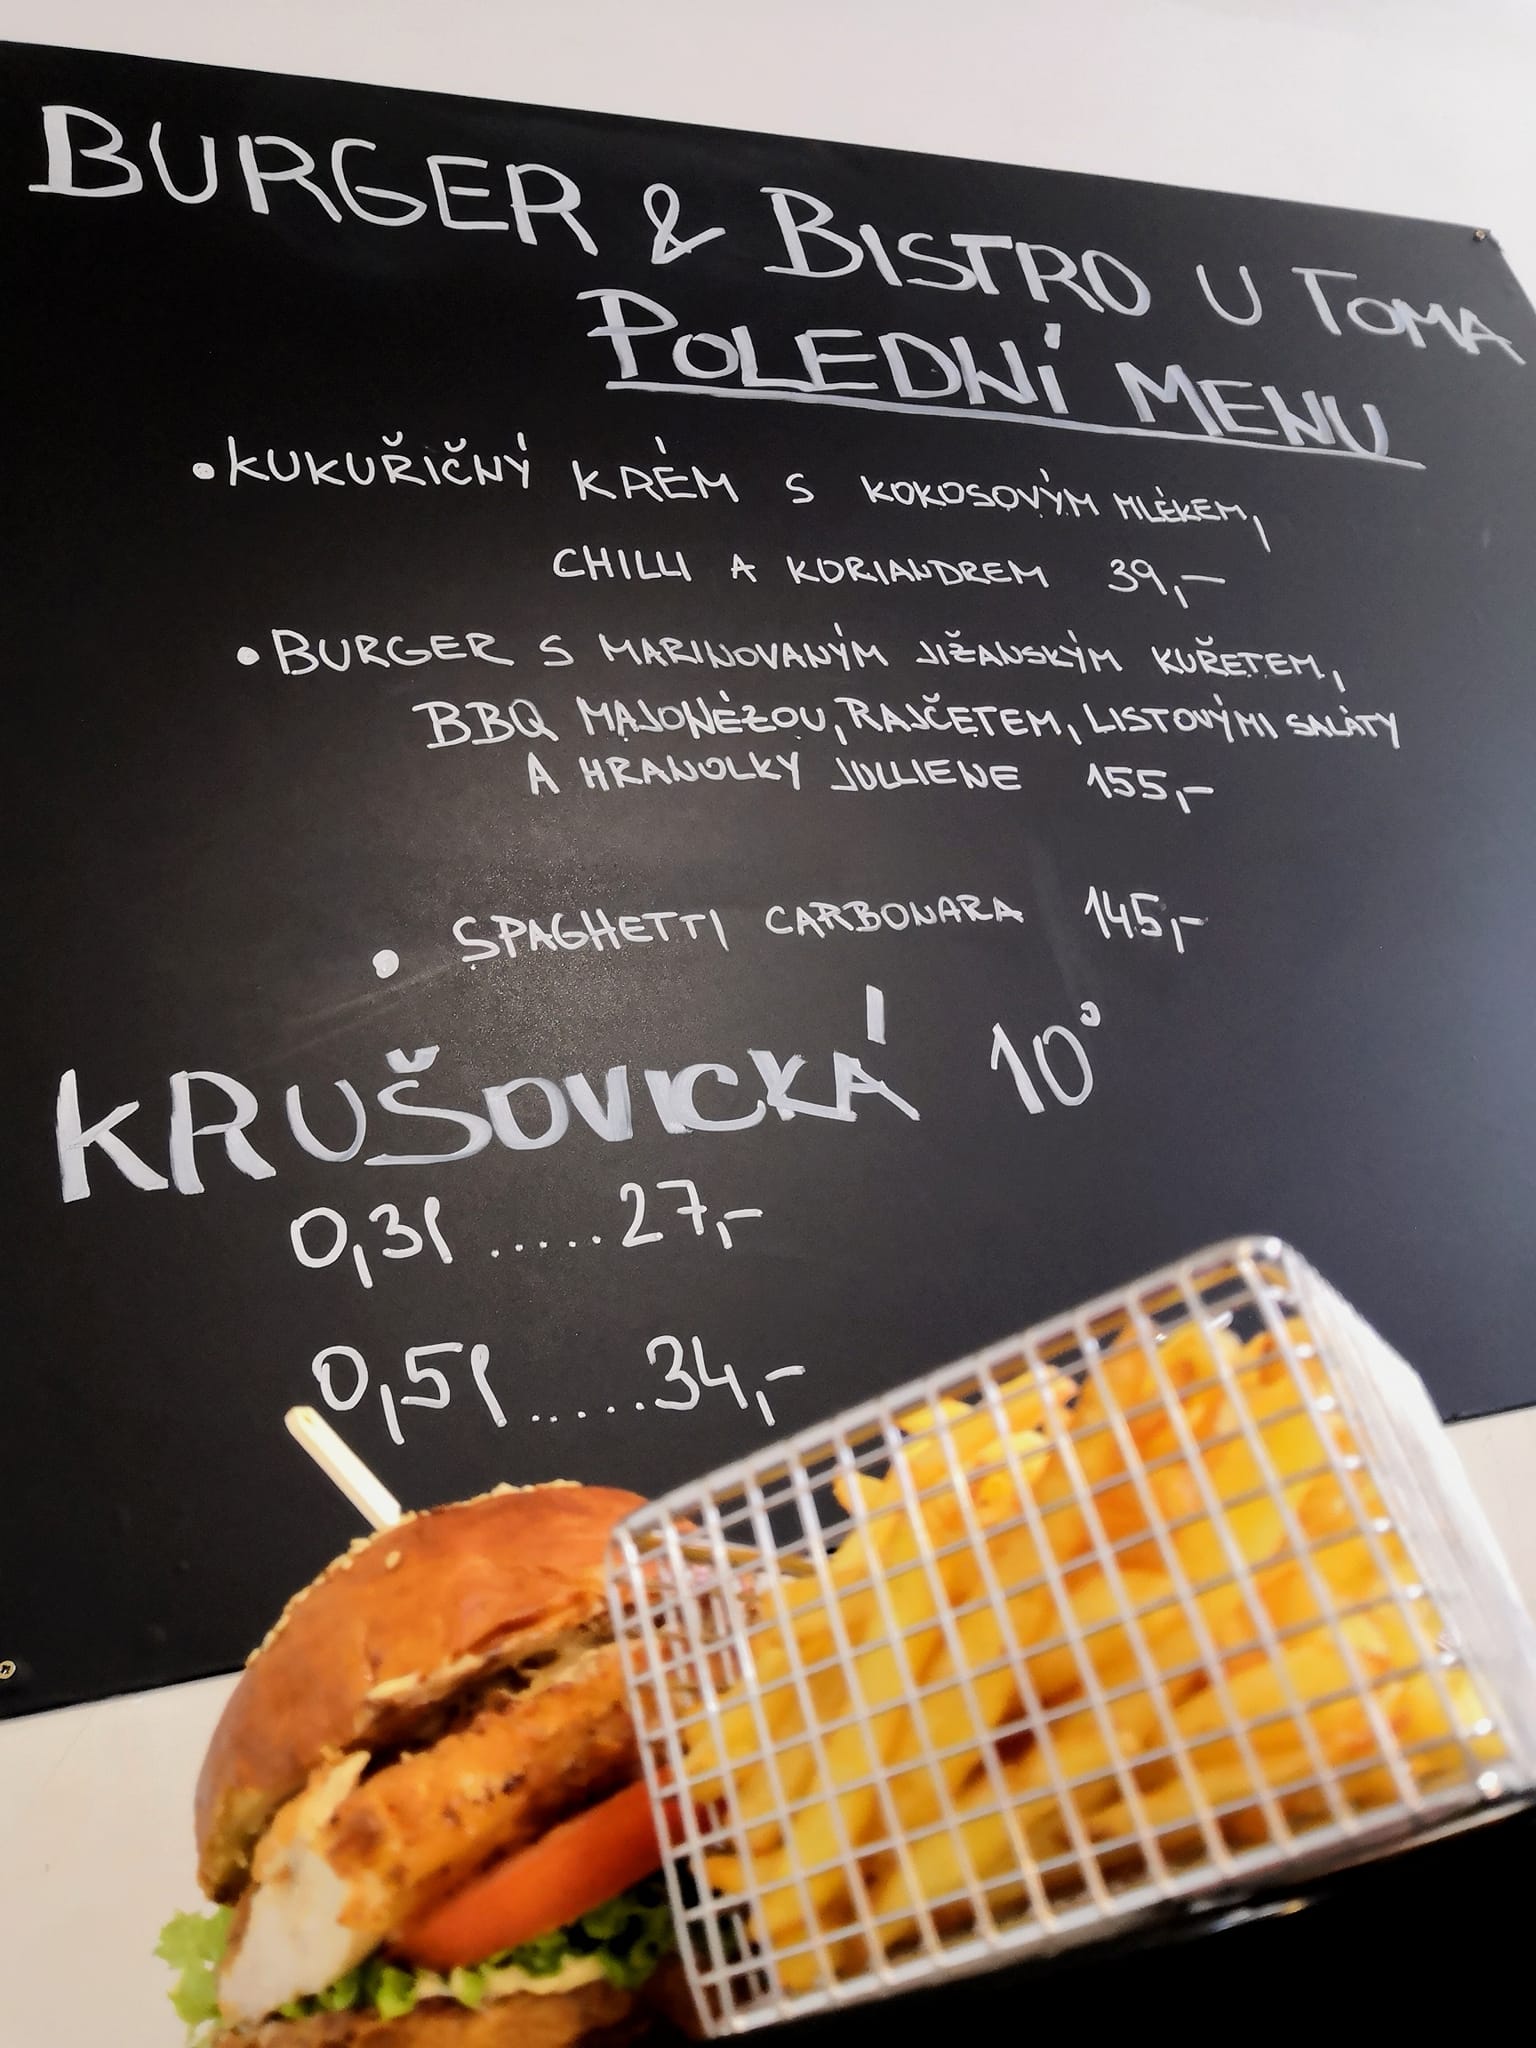 BURGER & BISTRO U TOMA
POLEDNÍ MENU
• KUKUŘIČNÝ KRÉM S KOKOSOVÝM MLÉKEM,
CHILLI A KORIANDREM 39,-
• BURGER S MARINOVANÝM JIŽANSKÝM KUŘETEM,
BBQ MAJONÉZOU, RAJČETEM, LISTOVÝMI SALÁTY
A HRANOLKY JULLIENE 155,-
• SPAGHETTI CARBONARA 145,-
KRUŠOVICKÁ 10°
0,3l ..... 27,-
0,5l ..... 34,-